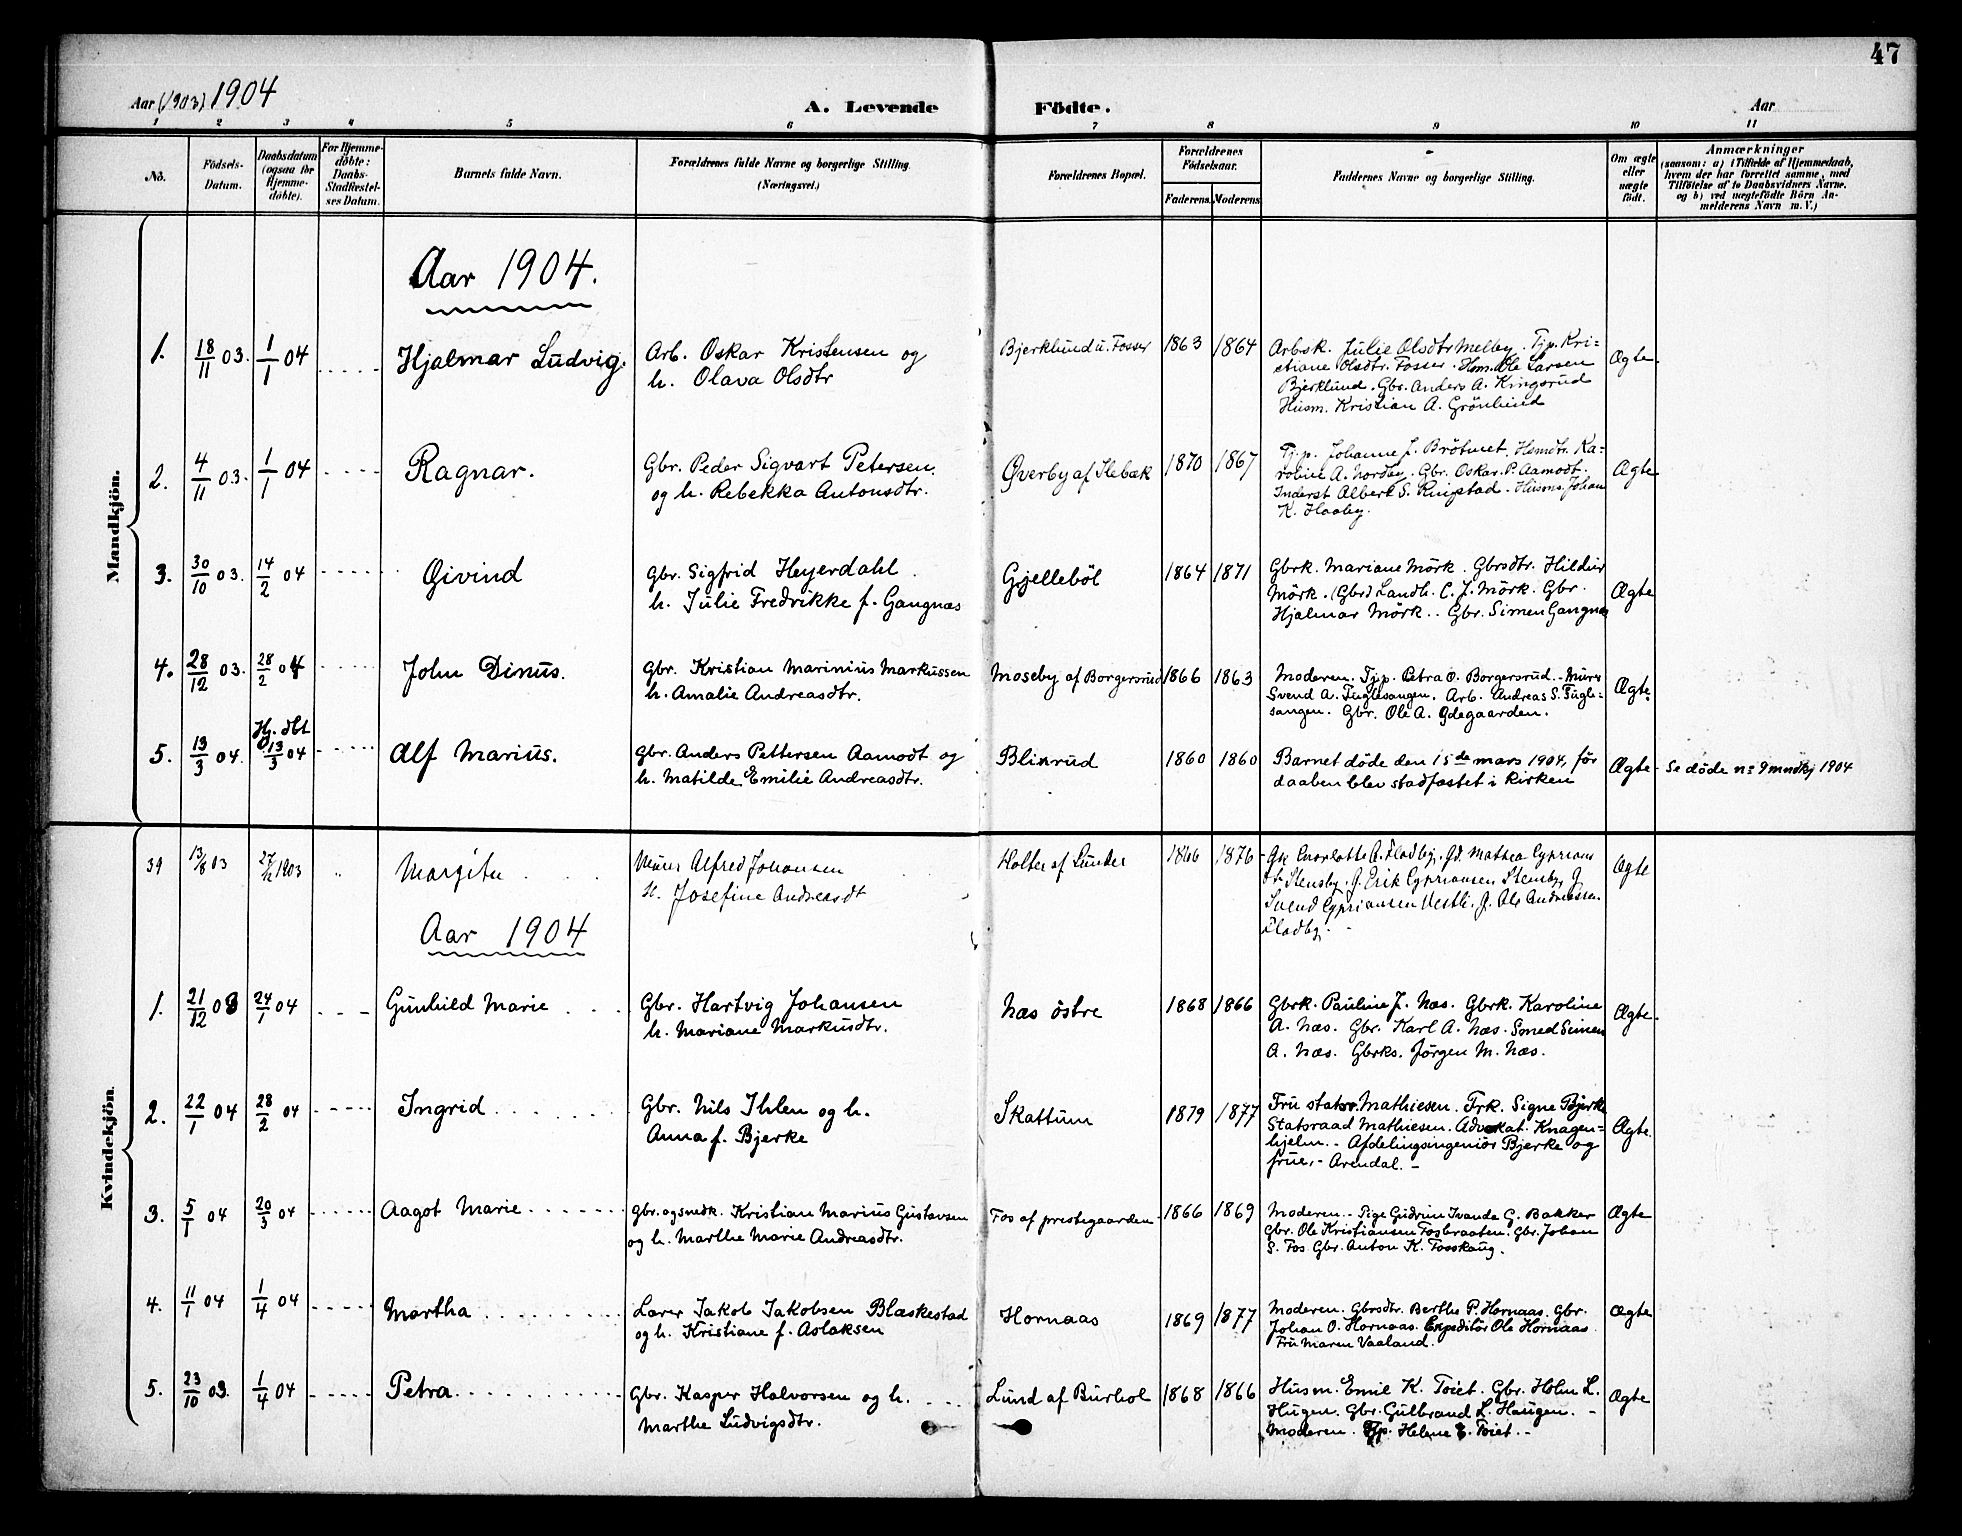 47
Aar (1903) 1904
A. Levende Födte.
Aar
1 2 3 4 5 6 7 8 9 10 11
No.
Födsels-
Datum.
Daabsdatum
(ogsaa for
Hjemme-
döbte).
For Hjemme-
döbte:
Daabs-
Stadfæstel-
ses Datum.
Barnets fulde Navn.
Forældrenes fulde Navne og borgerlige Stilling.
(Næringsvei.)
Forældrenes Bopæl.
Forældrenes
Födselsaar.
Faderens. Moderens.
Faddernes Navne og borgerlige Stilling.
Om ægte
eller
uægte
födt.
Anmærkninger
(saasom: a) i Tilfælde af Hjemmedaab,
hvem der har forrettet samme, med
Tilföielse af to Daabsvidners Navne.
og b) ved uægtefödte Börn An-
melderens Navn m. V.)
Mandkjön.
Aar 1904.
1. 18/11 03. 1/1 04
Hjalmar Ludvig.
Arb. Oskar Kristensen og
h. Olava Olsdtr
Bjerklund u. Fosser 1863 1864
Arbsk. Julie Olsdtr Melby. Tjp. Kri-
stiane Olsdtr. Fosser. Hsm. Ole Larsen
Bjerklund. Gbr. Anders A. Kingsrud
Husm. Kristian A. Grönlund
Ægte
2. 4/11 03. 1/1 04
Ragnar.
Gbr. Peder Sigvart Petersen
og h. Rebekka Antonsdtr.
Øverby af Ilebæk 1870 1867
Tjp. Johanne J. Brötmet. Hsmdtr. Ka-
roline A. Nordby. Gbr. Oskar P. Aamodt.
Inderst Albert S. Ringstad. Husms. Johan
K. Haaby.
Ægte
3. 30/10 03. 14/2 04
Øivind
Gbr. Sigfrid Heyerdahl
h. Julie Fredrikke f. Gangnæs
Gjelleböl 1864 1871
Gbrk. Mariane Mörk. Gbrsdtr. Hildur
Mörk. (Gbr) Landh. C. J. Mörk. Gbr.
Hjalmar Mörk. Gbr. Simen Gangnæs
Ægte
4. 28/12 03. 28/2 04
John Dinus.
Gbr. Kristian Marinius Markussen
h. Amalie Andreasdtr.
Moseby af Borgersrud 1866 1863
Moderen. Tjp. Petra O. Borgersrud. Murer
Svend A. Fuglesangen. Arb. Andreas S. Fugle-
sangen. Gbr. Ole A. Ødegaarden.
Ægte
5. 13/3 04. Hj. dbt
13/3 04
Alf Marius.
Gbr. Anders Pettersen Aamodt og
h. Matilde Emilie Andreasdtr.
Blixrud 1860 1860
Barnet döde den 15de mars 1904, för
daaben blev stadfæstet i kirken
Ægte
Se döde no 9 mndkj 1904
Kvindekjön.
39 13/8 03 27/12 1903
Margita
Murer Alfred Johansen
H. Josefine Andreasdt
Holter af Lunder 1866 1876
Gk Charlotte A. Fladby, Gd. Mathea Cyprians
dt Stensby, G. Erik Cypriansen Stensby, G
Svend Cypriansen Vestli, G. Ole Andreassen
Fladby.
Ægte
Aar 1904
1. 21/12 03 24/1 04
Gunhild Marie
Gbr. Hartvig Johansen
h. Mariane Markusdtr.
Næs östre 1868 1866
Gbrk. Pauline J. Næs. Gbrk. Karoline
A. Næs. Gbr. Karl A. Næs. Smed Simen
A. Næs. Gbrks. Jörgen M. Næs.
Ægte
2. 22/1 04 28/2 04
Ingrid
Gbr. Nils Ihlen og h.
Anna f. Bjerke
Skattum 1879 1877
Fru statsr. Mathiesen. Frk. Signe Bjerke
Statsraad Mathiesen. Advokat Knagen-
hjelm. - Afdelingsingeniör Bjerke og
frue. - Arendal. -
Ægte
3. 5/1 04 20/3 04
Aagot Marie
Gbr. og snedk. Kristian Marius Gustavsen
og h. Marthe Marie Andreasdtr.
Fos af prestegaarden 1866 1869
Moderen. - Pige Gudrun Ivanda G. Bakker
Gbr. Ole Kristiansen Fosbraaten. Gbr. Johan
S. Fos Gbr. Anton K. Fosskaug.
Ægte
4. 11/1 04 1/4 04
Martha
Lærer Jakob Jakobsen Blæskestad
og h. Kristiane f. Aslaksen
Hornaas 1869 1877
Moderen. Gbrsdtr. Berthe P. Hornaas. Gbr.
Johan O. Hornaas. Expeditör Ole Hornaas
Fru Maren Vaaland.
Ægte
5. 23/10 03. 1/4 04
Petra
Gbr. Kasper Halvorsen og h.
Marthe Ludvigsdtr.
Lund af Burhol 1868 1866
Husm. Emil K. Toiet. Gbr. Holm L.
Hugen. Gbr. Gulbrand L. Haugen. -
Moderen. Tjp. Helene E. Toiet. -
Ægte